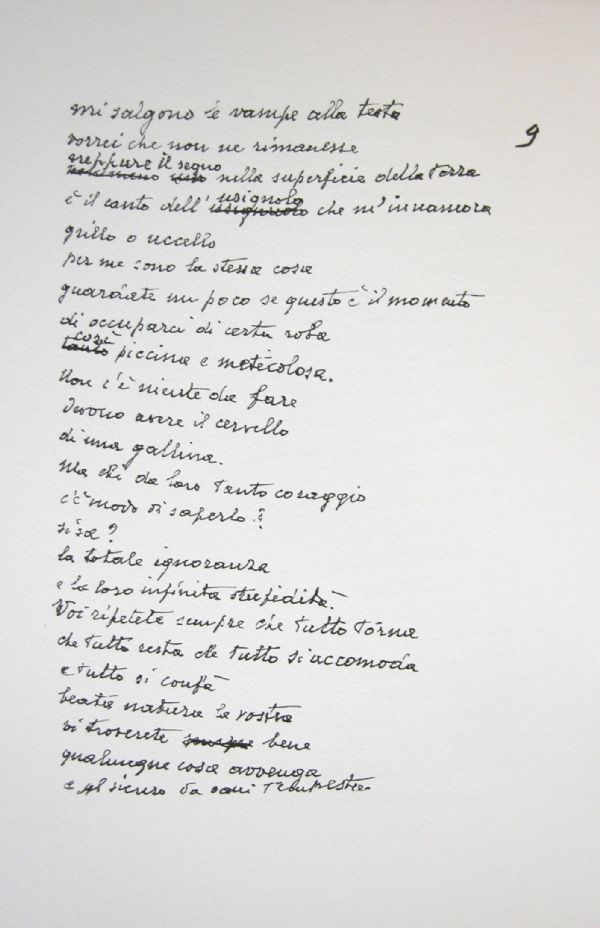 mi salgono le vampe alla testa
9
vorrei che non ne rimanesse
neppure il segno
nella superficie della Terra
usignolo
è il canto dell' usignuolo che m'innamora
grillo o uccello
per me sono la stessa cosa
guardate un poco se questo è il momento
di occuparci di certa roba
così
tanto piccina e meticolosa.
Non c'è niente da fare
devono avere il cervello
di una gallina.
Ma chi da loro tanto coraggio
c'è modo di saperlo?
si sa?
la totale ignoranza
e la loro infinita stupidità.
Voi ripetete sempre che tutto torna
che tutto resta che tutto si accomoda
e tutto si confà
beata natura la vostra
vi troverete sempre bene
qualunque cosa avvenga
e al sicuro da ogni Tempesta.